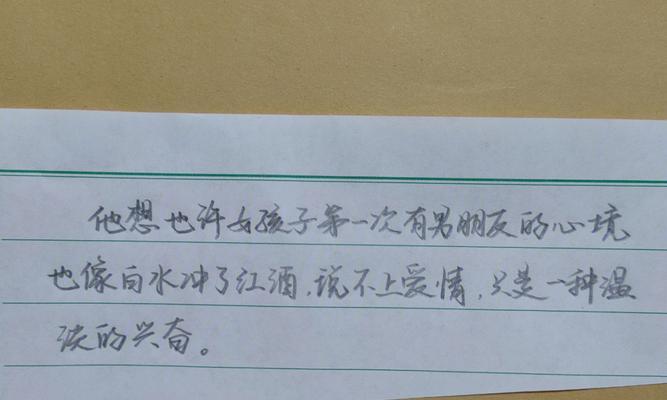 他想也许女孩子第一次有男朋友的心境
也像白水冲了红酒，说不上爱情，只是一种温
淡的兴奋。